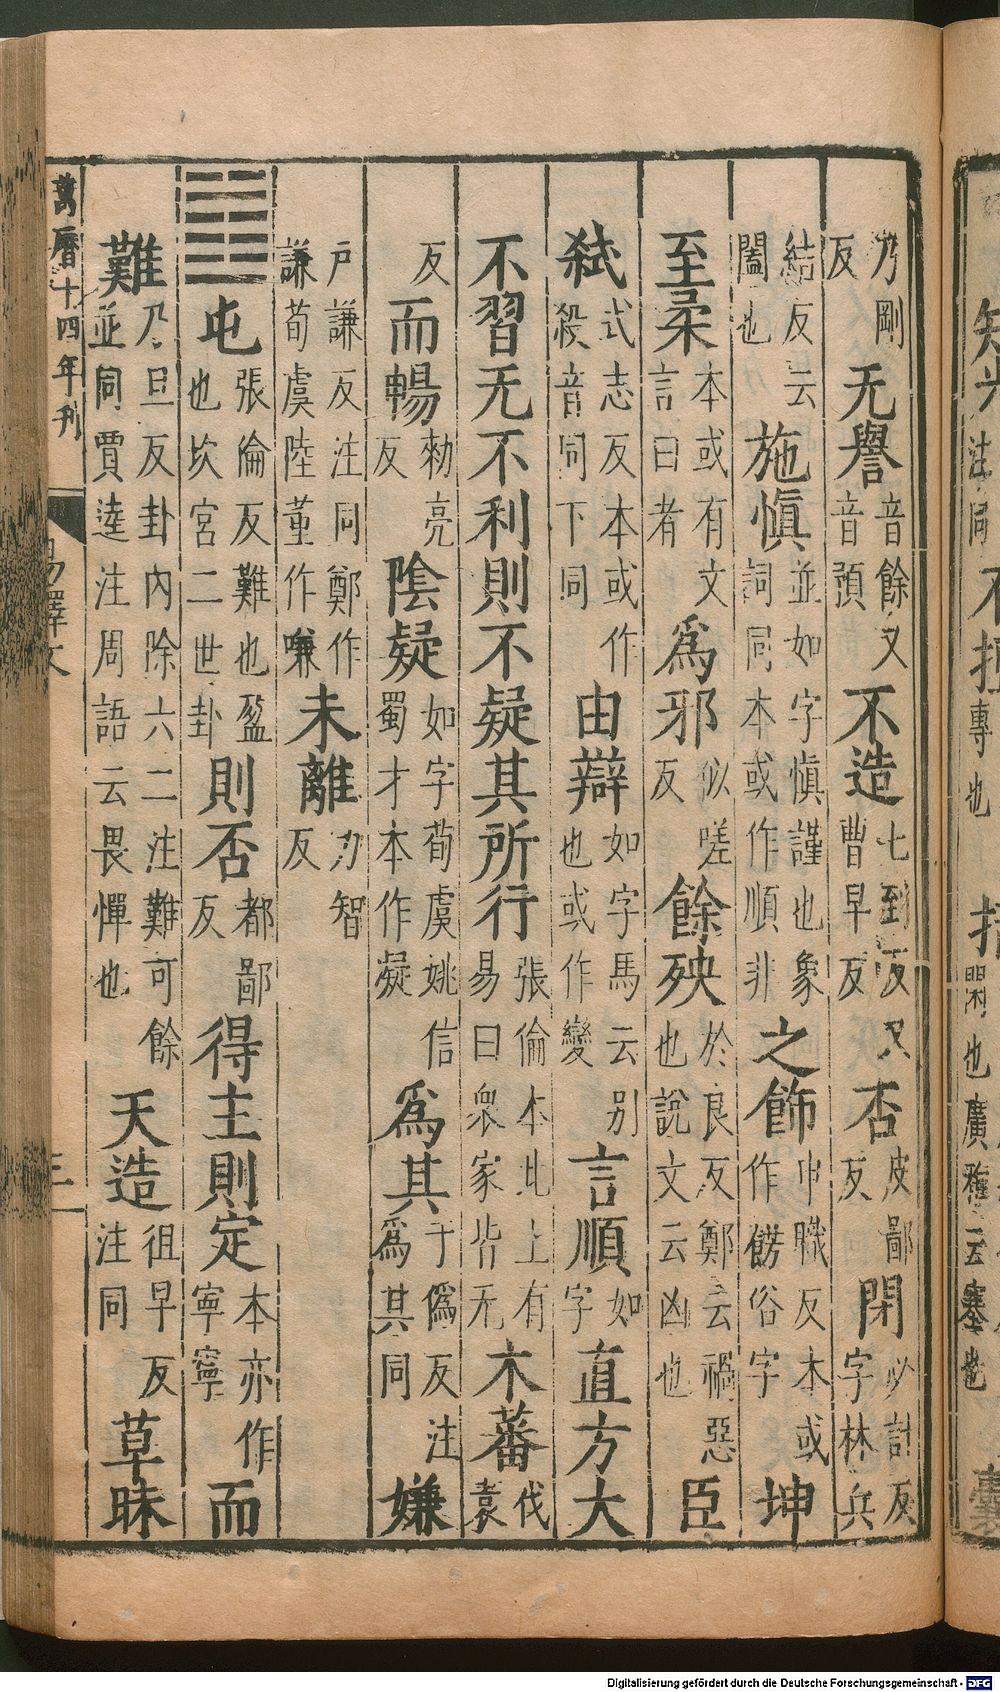 注同
不擅專也
閑也廣雅云塞也
乃剛反无譽音餘又音預不造七到反又曹早反否皮鄙反閉必計反字林兵
結反云闔也施愼並如字愼謹也象詞同本或作順非之飾申職反本或作餝俗字坤
至柔本或有文言曰者爲邪似嗟反餘殃於良反鄭云禍惡也說文云凶也臣
弒式志反本或作殺音同下同由辯如字馬云别也或作變言順如字直方大
不習无不利則不疑其所行張倫本此上有易曰衆家皆无木蕃伐袁
反而暢勑亮反隂疑如字荀虞姚信蜀才本作凝爲其于僞反注爲其同嫌
戶謙反注同鄭作謙荀虞陸董作嗛未離力智反
䷂屯張倫反難也盈也坎宮二世卦則否都鄙反得主則定本亦作寧寧而
難乃旦反卦内除六二注難可餘並同賈逵注周語云畏憚也天造徂早反注同草昧
萬曆十四年刊
易釋文 三
Digitalisierung gefördert durch die Deutsche Forschungsgemeinschaft - DFG